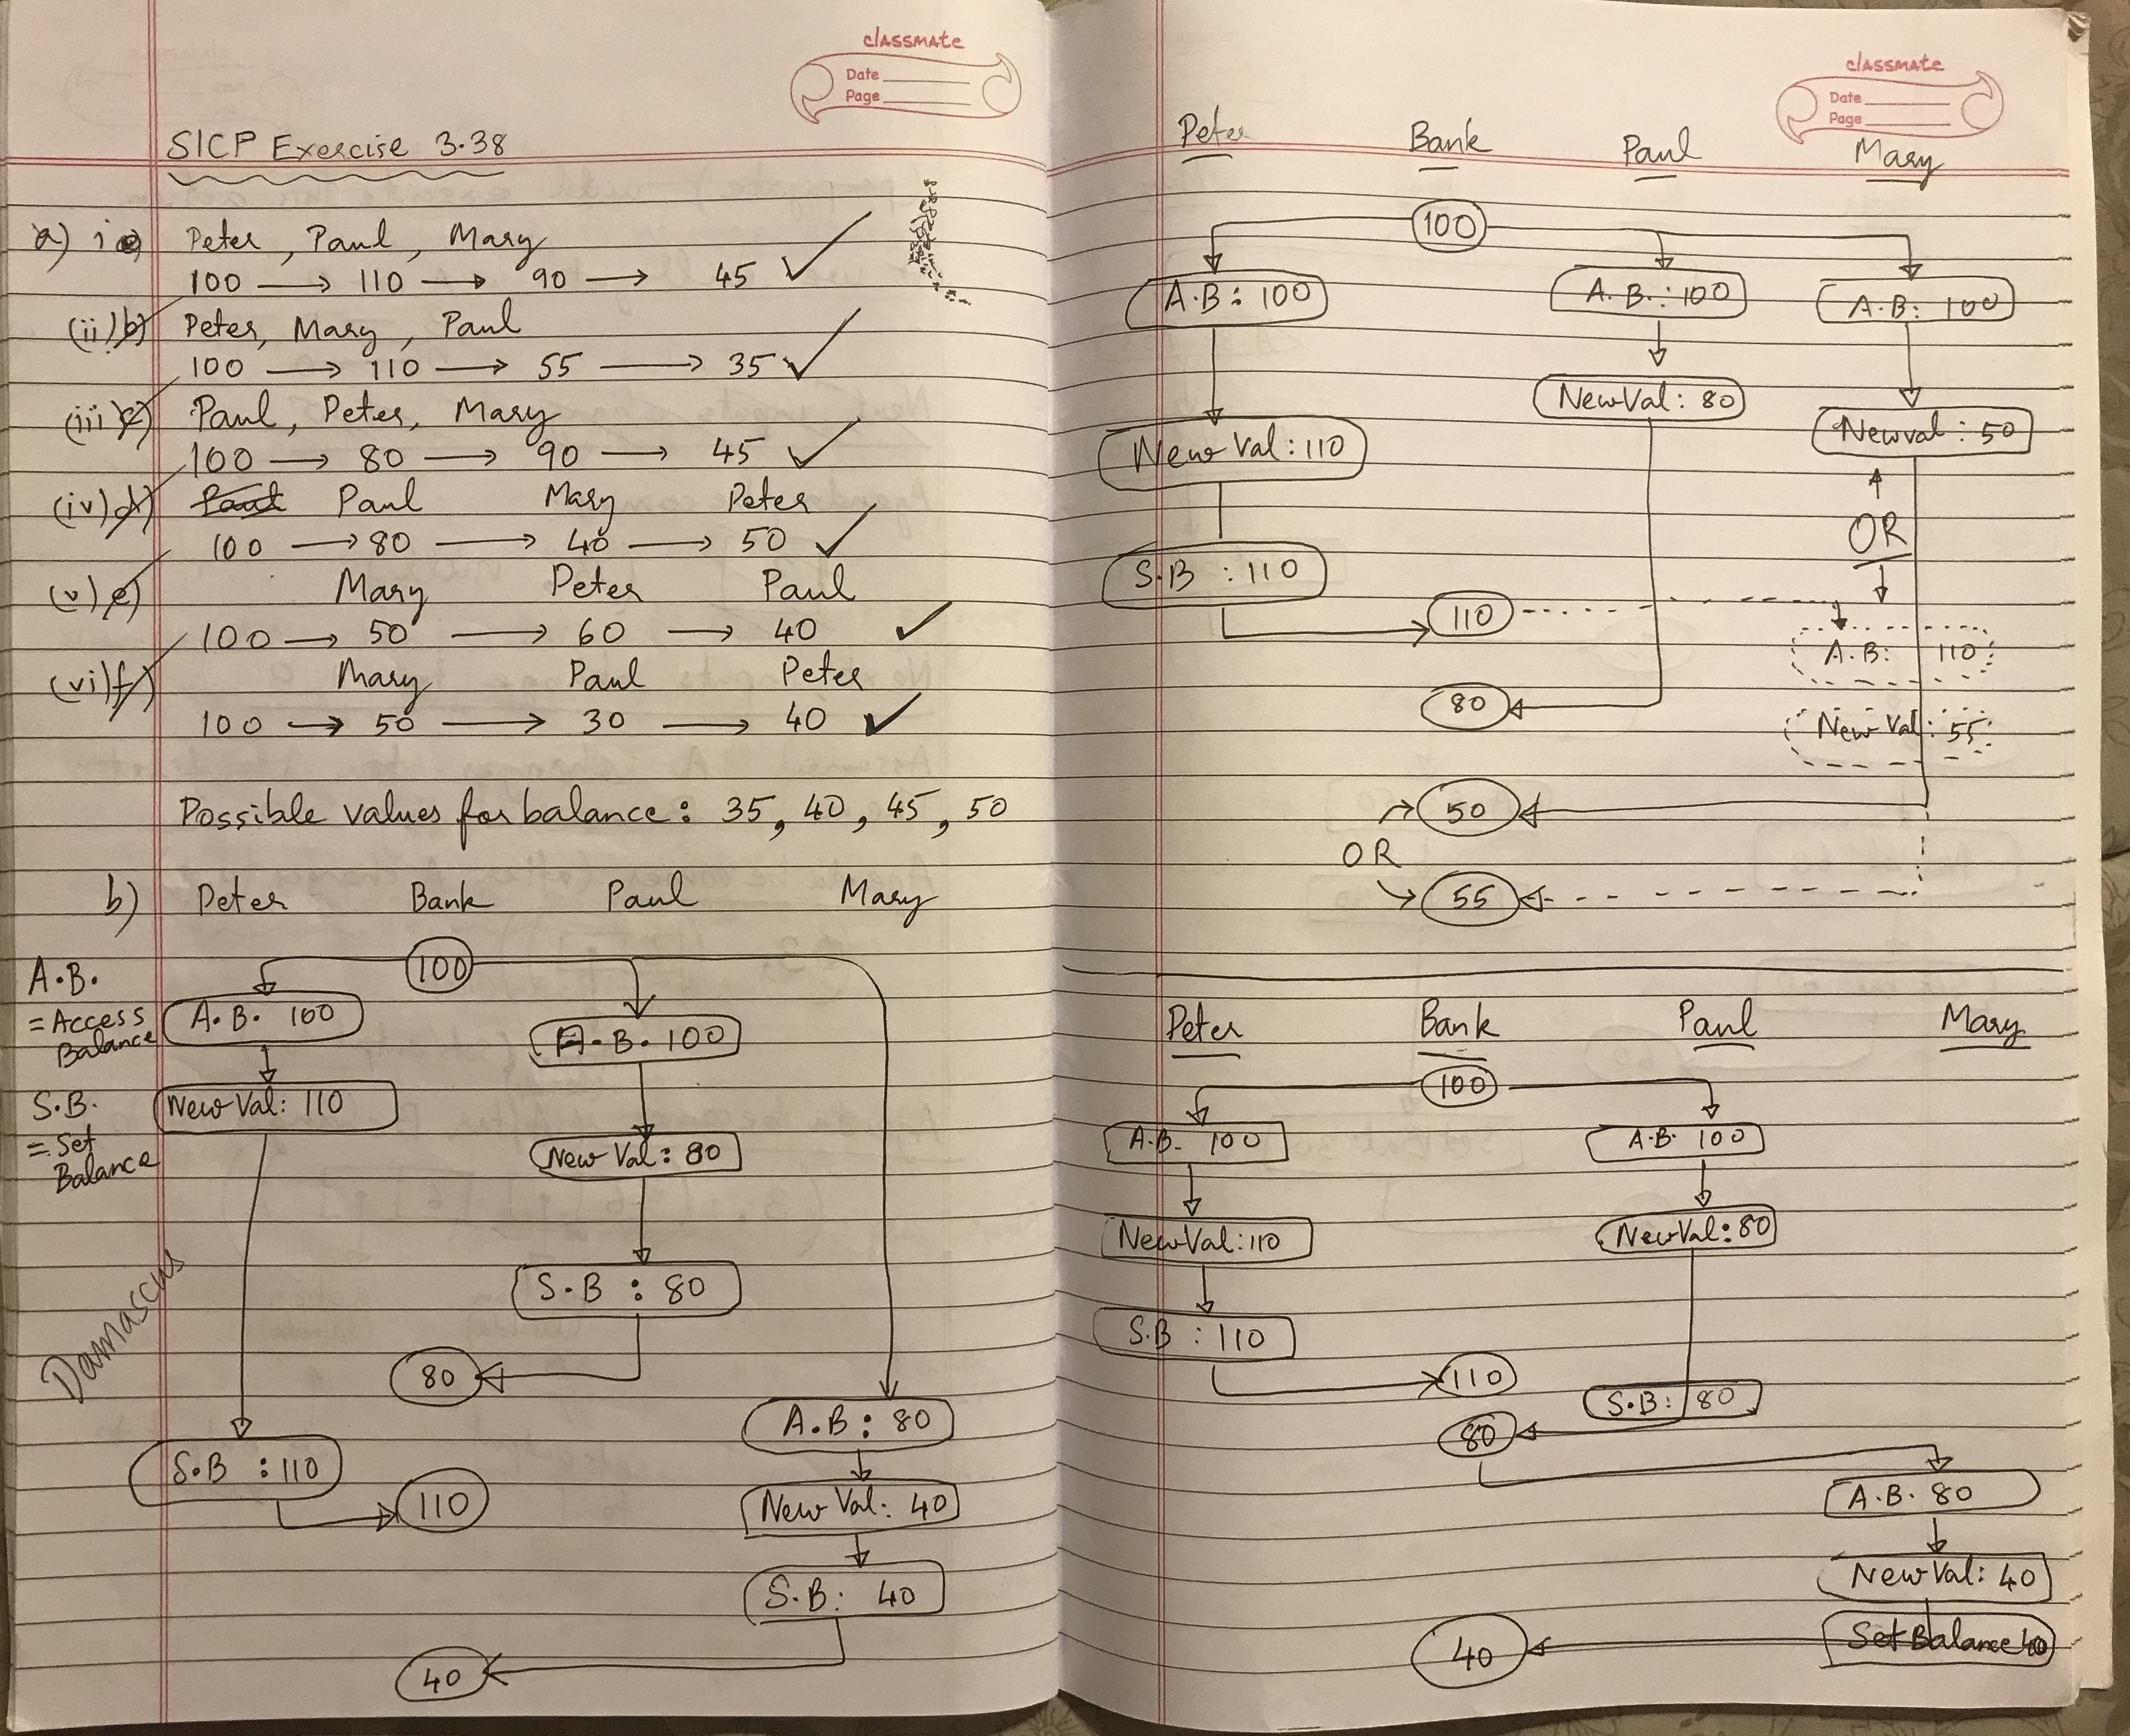 classmate
Date
Page
SICP Exercise 3.38
a) i) Peter, Paul, Mary
100 → 110 → 90 → 45 ✓
(ii) b) Peter, Mary, Paul
100 → 110 → 55 → 35 ✓
(iii) c) Paul, Peter, Mary
100 → 80 → 90 → 45 ✓
(iv) d) Paul Paul Mary Peter
100 → 80 → 40 → 50 ✓
(v) e) Mary Peter Paul
100 → 50 → 60 → 40 ✓
(vi) f) Mary Paul Peter
100 → 50 → 30 → 40 ✓
Possible values for balance: 35, 40, 45, 50
b) Peter Bank Paul Mary
100
A.B.
= Access
Balance
A.B. 100
A.B. 100
S.B.
= Set
Balance
New Val: 110
New Val: 80
S.B : 80
Damascus
80
A.B : 80
S.B : 110
110
New Val: 40
S.B: 40
40
classmate
Date
Page
Peter Bank Paul Mary
100
A.B: 100
A.B.: 100
A.B: 100
New Val: 80
New Val: 110
Newval: 50
OR
S.B : 110
110
A.B: 110
80
New Val: 55
50
OR
55
Peter Bank Paul Mary
100
A.B. 100
A.B. 100
New Val: 110
New Val: 80
S.B : 110
110
S.B: 80
80
A.B. 80
New Val: 40
Set Balance 40
40